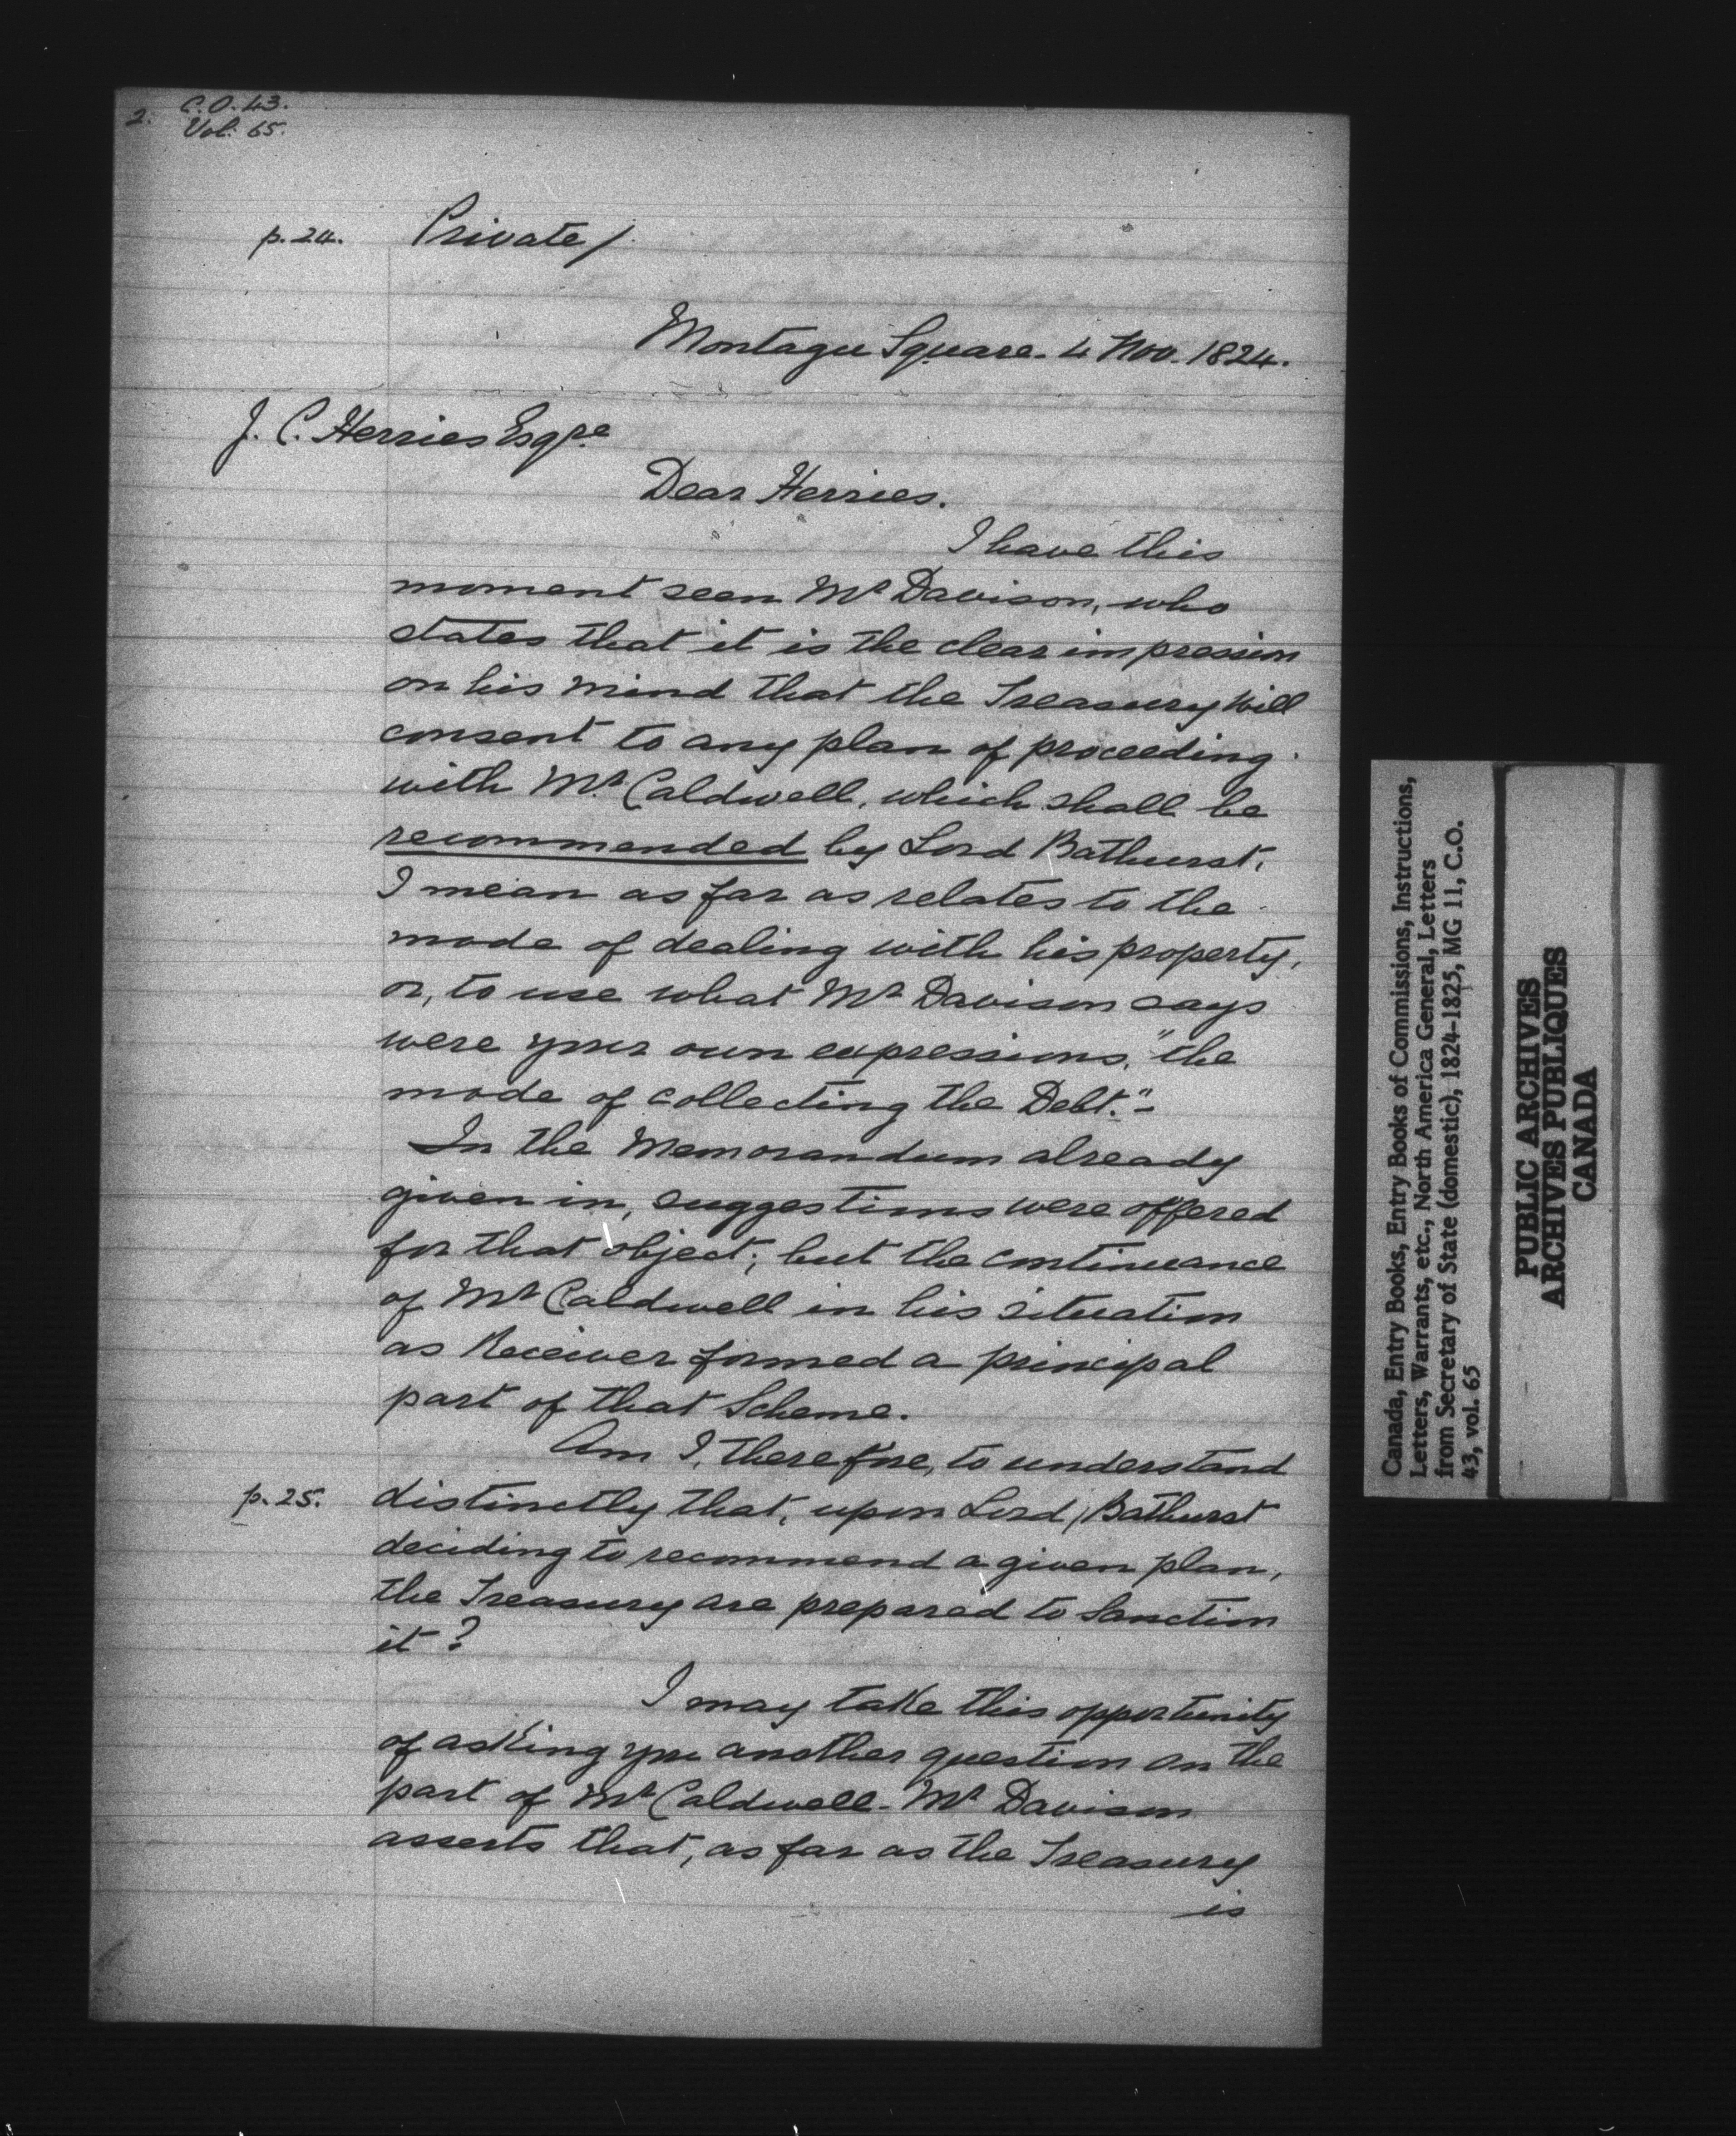 2. C.O. 43.
Vol. 65.
p. 24. Private/
Montagu Square. 4 Nov. 1824.
J. C. Herries Esqre
Dear Herries.
I have this
moment seen Mr Davison, who
states that it is the clear impression
on his mind that the Treasury will
consent to any plan of proceeding
with Mr. Caldwell, which shall be
recommended by Lord Bathurst,
I mean as far as relates to the
mode of dealing with his property,
or, to use what Mr Davison says
were your own expressions, "the
mode of collecting the Debt."-
In the Memorandum already
given in, suggestions were offered
for that object; but the continuance
of Mr Caldwell in his situation
as Receiver formed a principal
part of that Scheme.
Am I, therefore, to understand
p. 25. distinctly that, upon Lord / Bathurst
deciding to recommend a given plan,
the Treasury are prepared to Sanction
it?
I may take this opportunity
of asking you another question on the
part of Mr Caldwell - Mr Davison
asserts that, as far as the Treasury
is
Canada, Entry Books, Entry Books of Commissions, Instructions,
Letters, Warrants, etc., North America General, Letters
from Secretary of State (domestic), 1824-1825, MG 11, C.O.
43, vol. 65
PUBLIC ARCHIVES
ARCHIVES PUBLIQUES
CANADA